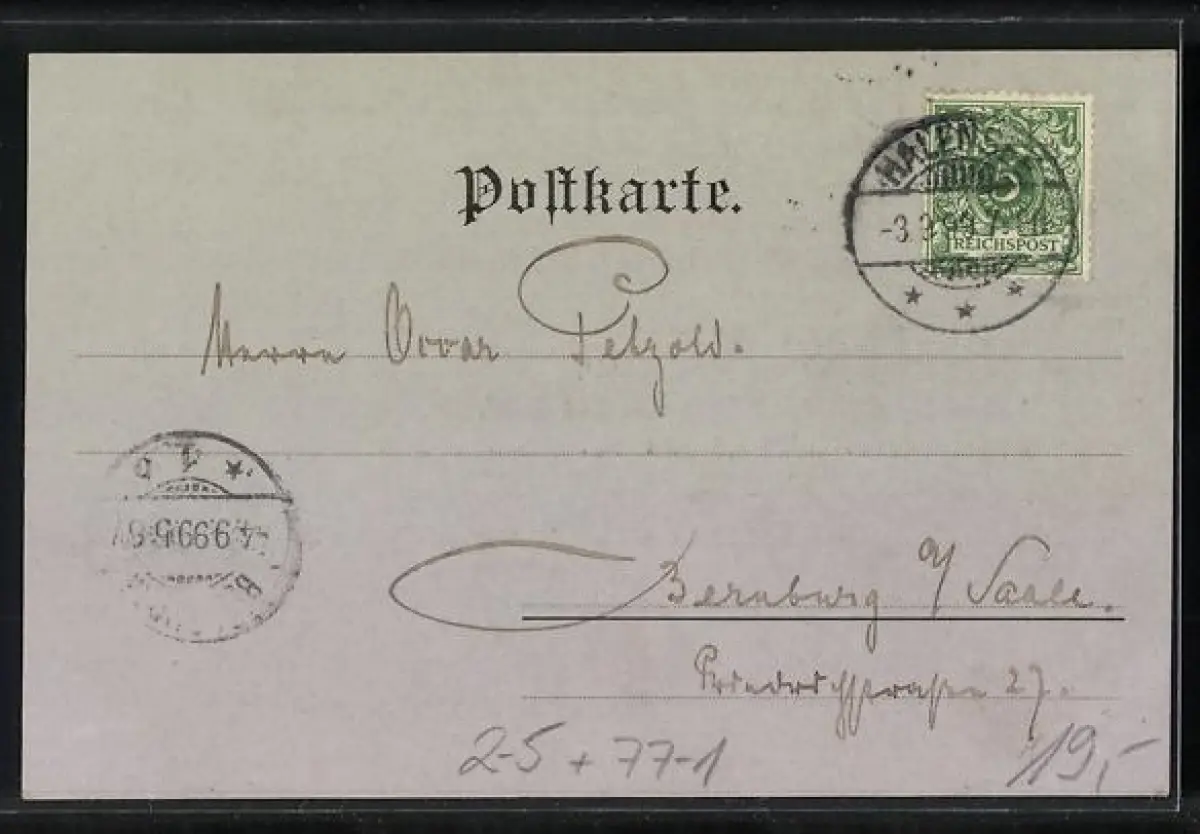 Postkarte.
HALENS
5
REICHSPOST
-3.9.99.7-
Herrn Oscar Petzold.
4.9.99.5-6
Bernburg a/ Saale.
Friedrichstrasse 27.
2-5 + 77-1
19,-